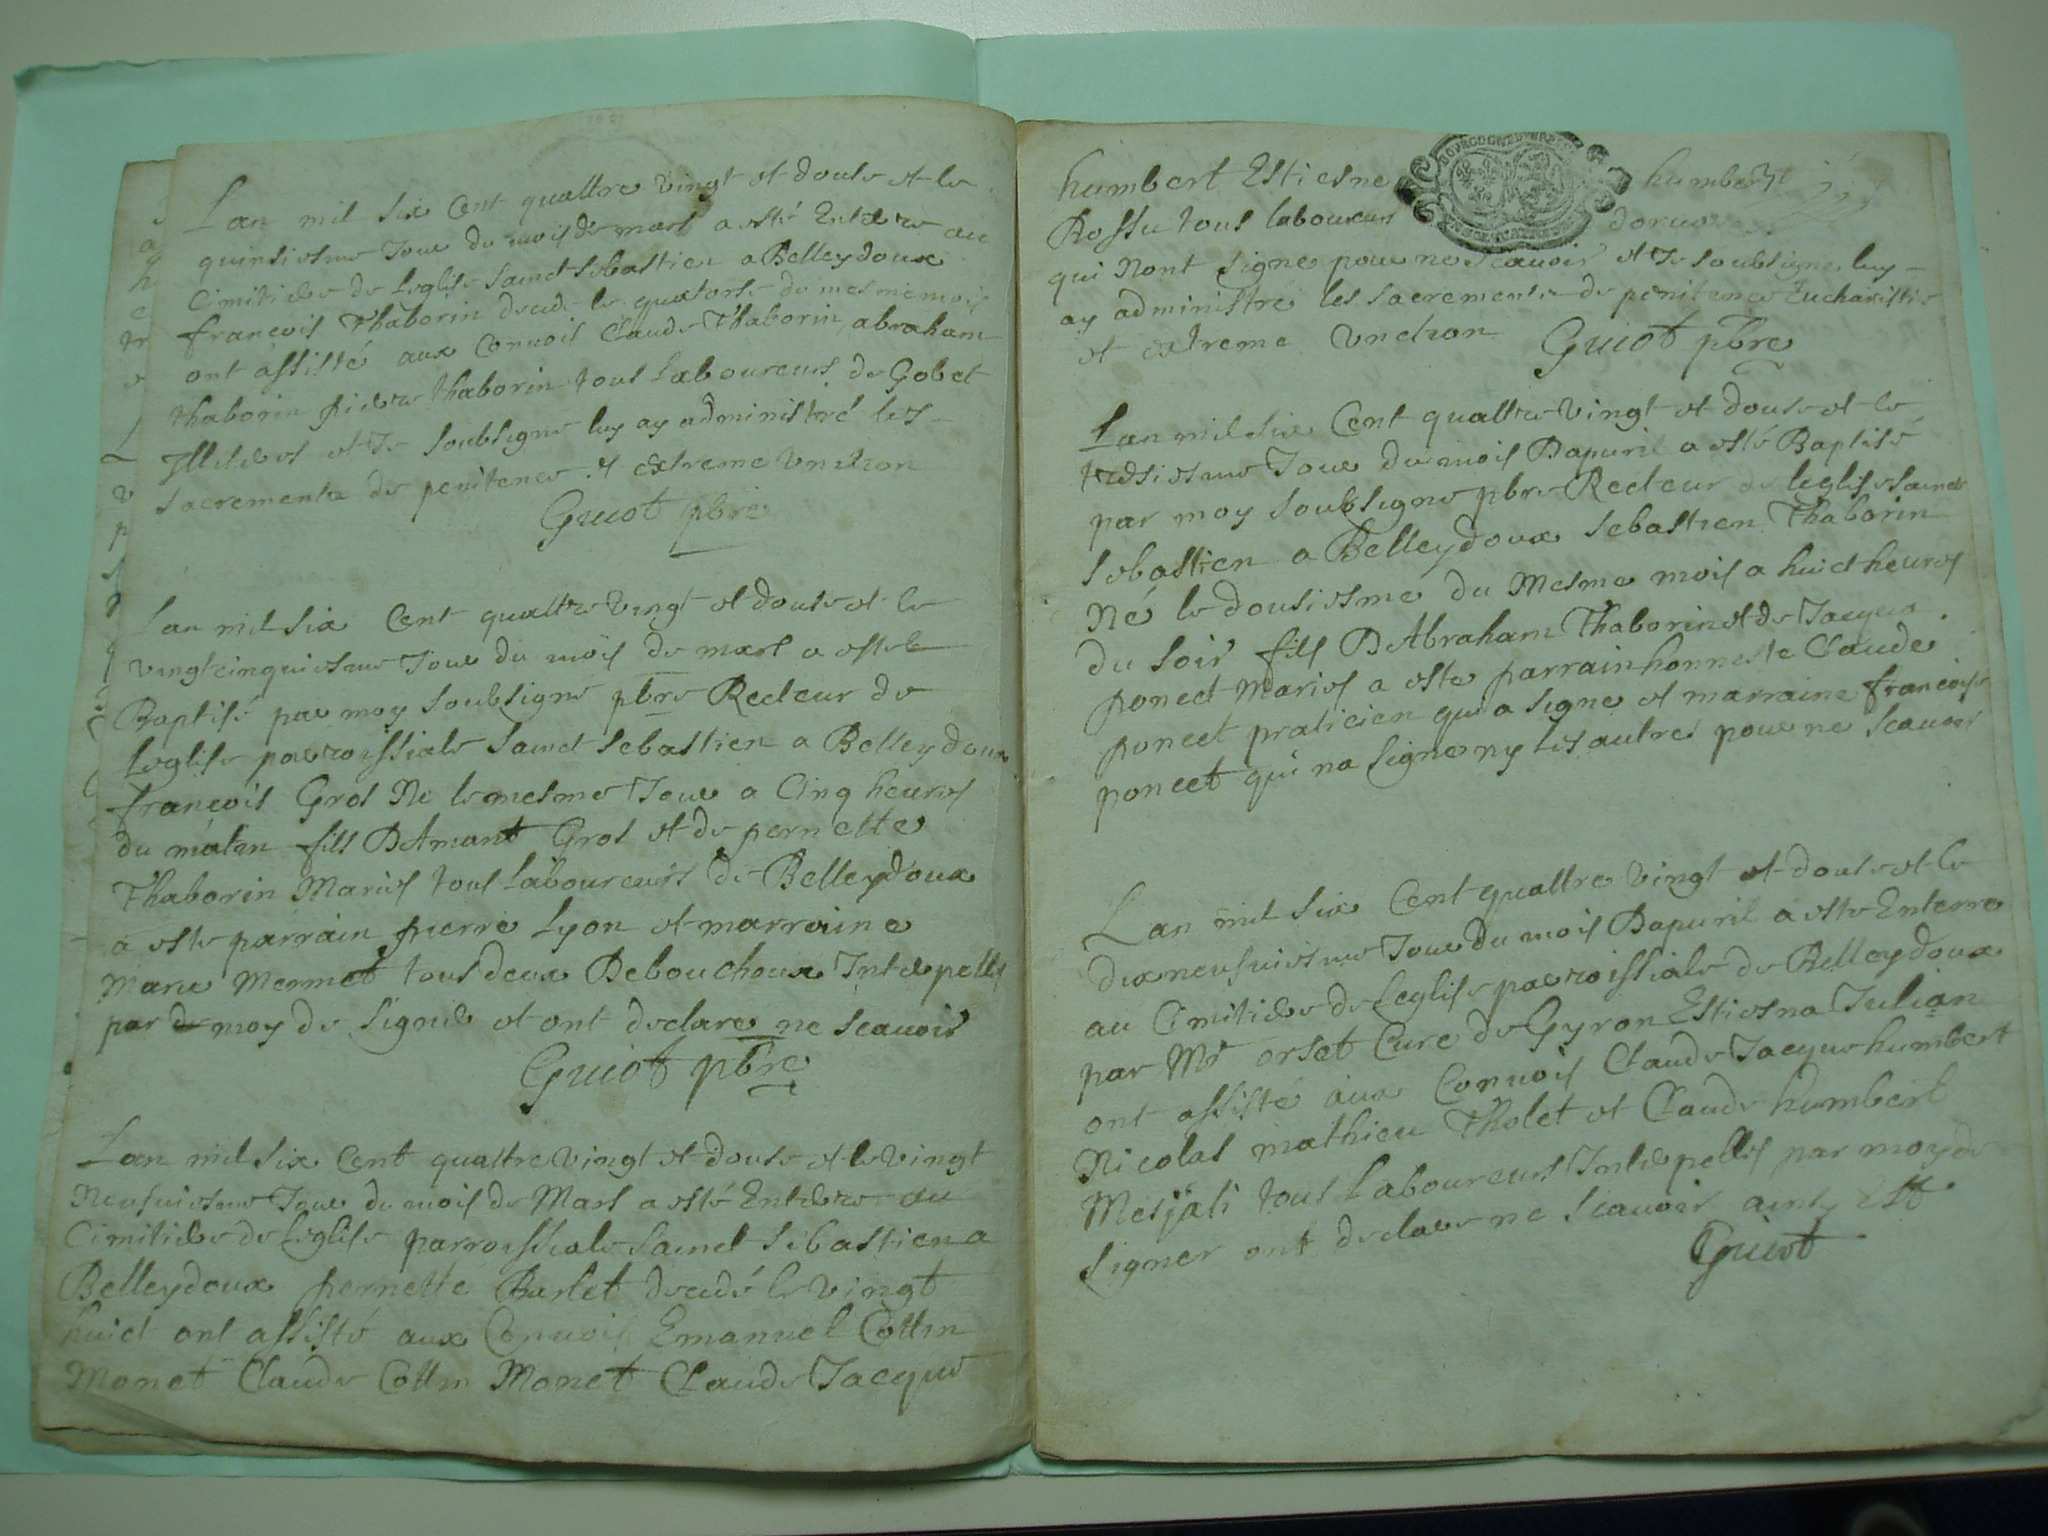 Lan mil six Cent quattre vingt et douse et le
quinsiesme Jour du mois de mars a esté Enterre au
Cimitiere de Leglise Sainct Sebastien a Belleydoux
françois Thaborin decede le quatorse du mesme mois
ont assisté aux Convois Claude Thaborin abraham
thaborin pierre thaborin tous Laboureurs de Gobet
Illiteres et Je soubsigne luy ay administré les
sacrements de penitence et extreme Unction
Guiot pbre
Lan mil six Cent quattre vingt et douse et le
vingt cinquiesme Jour du mois de mars a esté
Baptisé par moy soubsigné pbre Recteur de
Leglise parroissiale Sainct Sebastien a Belleydoux
françois Gros Ne le mesme Jour a Cinq heures
du matin fils DAmant Gros et de pernette
Thaborin Mariés tous Laboureurs de Belleydoux
a esté parrain pierre Lyon et marraine
Marie Mermet tous deux Debouchoux Interpellés
par de moy de Signer et ont declare ne scavoir
Guiot pbre
Lan mil six Cent quattre vingt et douse et le vingt
Neufuiesme Jour du mois de Mars a esté Enterre au
Cimitiere de Leglise parroissiale Sainct Sebastien a
Belleydoux pernette Barlet decedé le vingt
huict ont assisté aux Convois Emanuel Cottin
Monet Claude Cottin Monet Claude Jacques
humbert Estiesne humbert
Rossu tous laboureurs
qui Nont signe pour ne scavoir et Je soubsigne luy
ay administré les sacrements de penitence Eucharistie
et extreme Unction Guiot pbre
Lan mil six Cent quattre vingt et douse et le
tresiesme Jour du mois Dapuril a esté Baptisé
par moy soubsigne pbre Recteur de leglise Sainct
Sebastien a Belleydoux Sebastien Thaborin
Né le dousiesme du Mesme mois a huict heures
du soir fils DAbraham Thaborin et de Jacqua
poncet Maries a este parrain honneste Claude
poncet praticien qui a signe et marraine françoise
poncet qui na signe ny les autres pour ne scavoir
Lan mil six Cent quattre vingt et douse et le
dix neufuiesme Jour du mois Dapuril a esté Enterre
au Cimitiere de Leglise parroissiale de Belleydoux
par Mr orset Cure de Gyron Estiesna Julian
ont assisté aux Convois Claude Jacque humbert
Nicolas mathieu Tholet et Claude humbert
Mesjati tous Laboureurs Interpellés par moy de
signer ont declare ne scavoir ainsy Est
Guiot